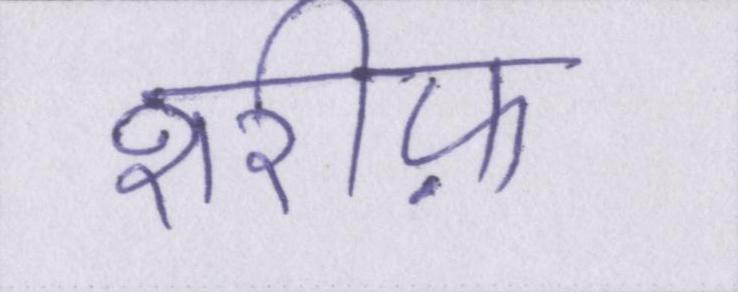 शरीफ़